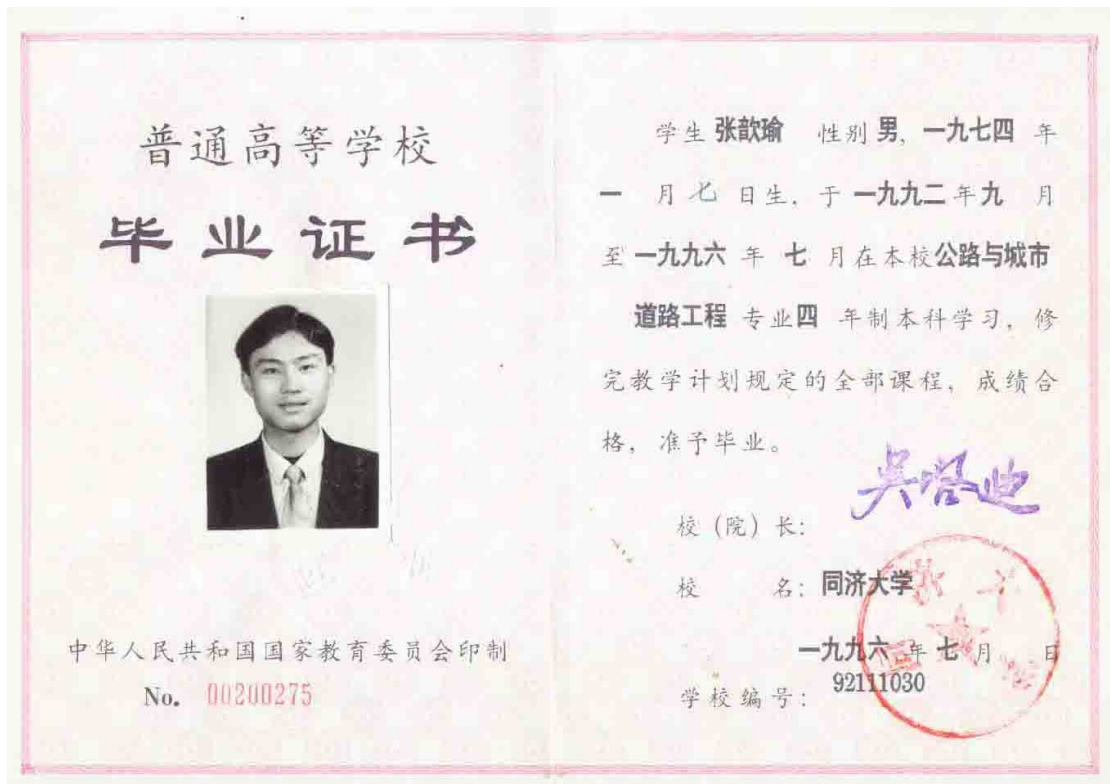 普通高等学校
毕业证书
中华人民共和国国家教育委员会印制
No. 00200275
学生 张歆瑜 性别 男, 一九七四 年
一 月 七 日生, 于 一九九二 年 九 月
至 一九九六 年 七 月在本校公路与城市
道路工程 专业四 年制本科学习, 修
完教学计划规定的全部课程, 成绩合
格, 准予毕业。
校 (院) 长: 吴启迪
校 名: 同济大学
一九九六 年 七 月 日
学校编号: 92111030